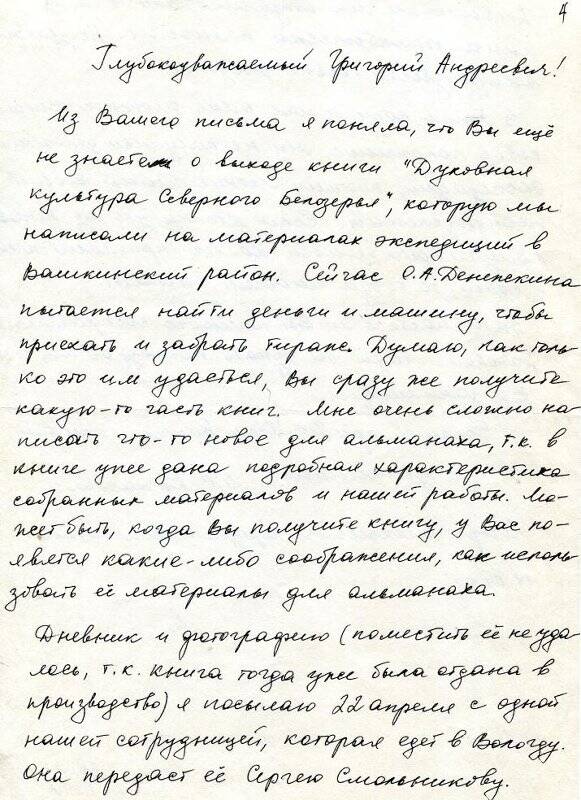 4
Глубокоуважаемый Григорий Андреевич!
Из Вашего письма я поняла, что Вы ещё
не знаете о выходе книги "Духовная
культура Северного Белозерья", которую мы
написали на материалах экспедиций в
Вашкинский район. Сейчас О.А.
пытается найти деньги и машину, чтобы
приехать и забрать тираж. Думаю, как толь-
ко это им удасться, Вы сразу же получите
какую-то часть книг. Мне очень сложно на-
писать что-то новое для альманаха, т.к. в
книге уже дана подробная характеристика
собранных материалов и нашей работы. Мо-
жет быть, когда Вы получите книгу, у Вас по-
явятся какие-либо соображения, как исполь-
зовать её материалы для альманаха.
Дневник и фотографию (поместить её не уда-
лось, т.к. книга тогда уже была отдана в
производство) я посылаю 22 апреля с одной
нашей сотрудницей, которая едет в Вологду.
Она передаст её Сергею Смольникову.